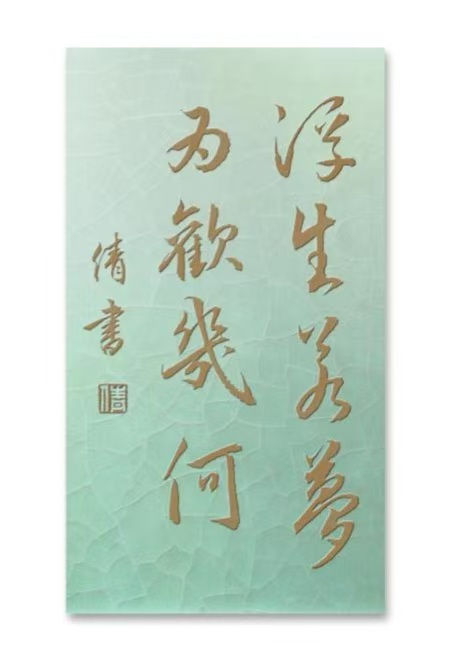 浮生若夢
为歡幾何
倩書
倩